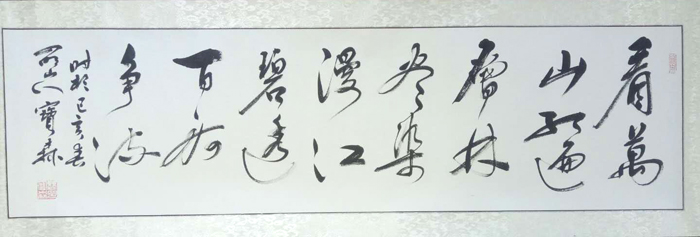 看萬
山紅遍
層林
盡染
漫江
碧透
百舸
爭流
時於己亥春
寶森